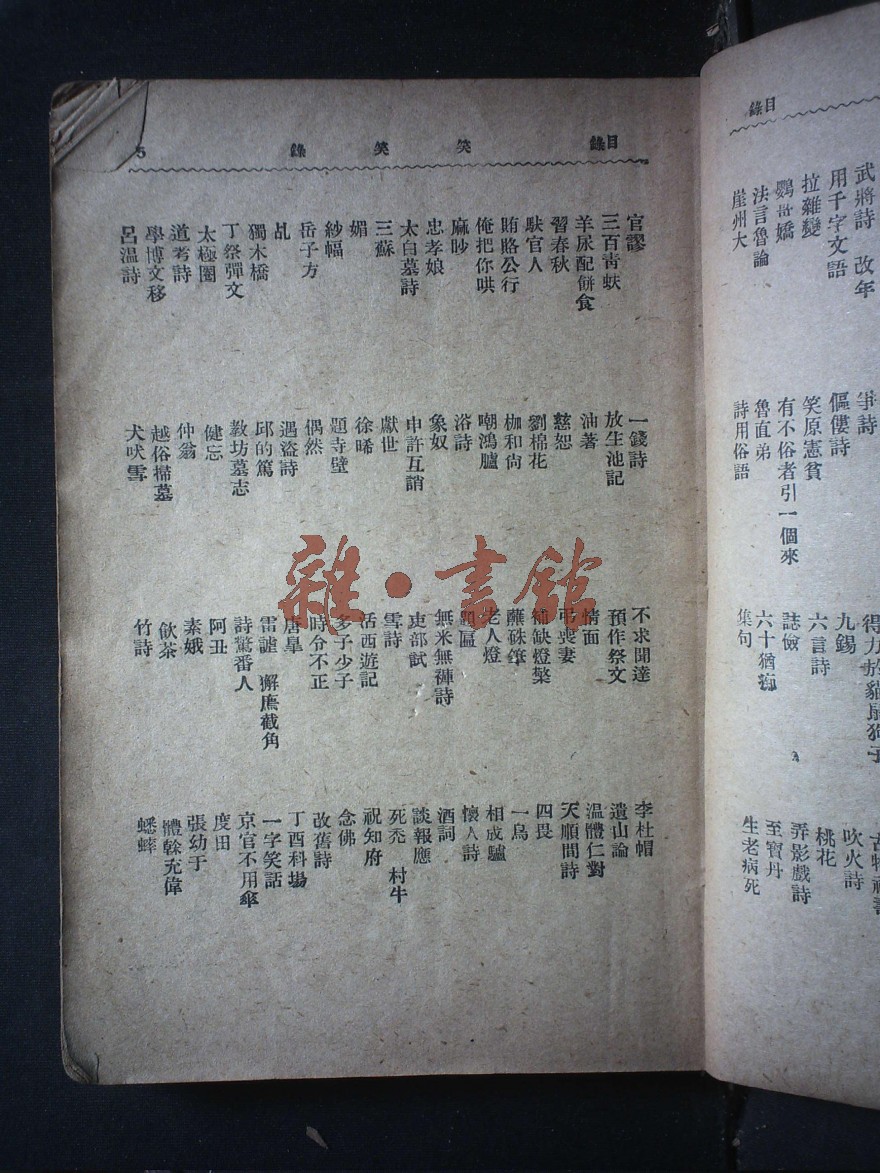 目錄
武將詩 改年
用千字文語
拉雜變
鸚哥嬌
法言魯論
崖州大
詩
傴僂詩
笑原憲貧
有不俗者引一個來
魯直弟
詩用俗語
得力於貓鼠狗子
九錫
六言詩
誌儉
六十猶痴
集句
吹火詩
桃花
弄影戲詩
至寶丹
生老病死
目錄 笑笑錄 5
官謬
三百青蚨
羊尿配餅食
習春秋
馱官人
賄賂公行
俺把你哄
麻吵
忠孝娘
太白墓詩
三蘇
媚
紗幅
岳子方
乩
獨木橋
丁祭彈文
太極圈
道考詩
學博文移
呂溫詩
一錢詩
放生池記
油著
慈恕
劉棉花
枷和尚
嘲鴻臚
浴詩
象奴
申許互誚
獻世
徐晞
題寺壁
偶然
遇盜詩
邱的篤
教坊墓志
健忘
仲翁
越俗掃墓
犬吠雪
不求聞達
預作祭文
情面
弔喪妻
補缺燈檠
蘸硃筆
老人燈
無米無褲詩
吏部試
雪詩
活西遊記
多子少子
時分不正
唐皐
雷謔 獬廌截角
詩驚番人
阿丑
素娥
飲茶
竹詩
李杜帽
遺山論
溫體仁對
天順間詩
四畏
一鳥
相成驢
懷人詩
酒詞
談報應
死禿 村牛
祝知府
念佛
改舊詩
丁酉科場
一字笑話
京官不用傘
度田
張幼于
體幹充偉
蟋蟀
雜·書館